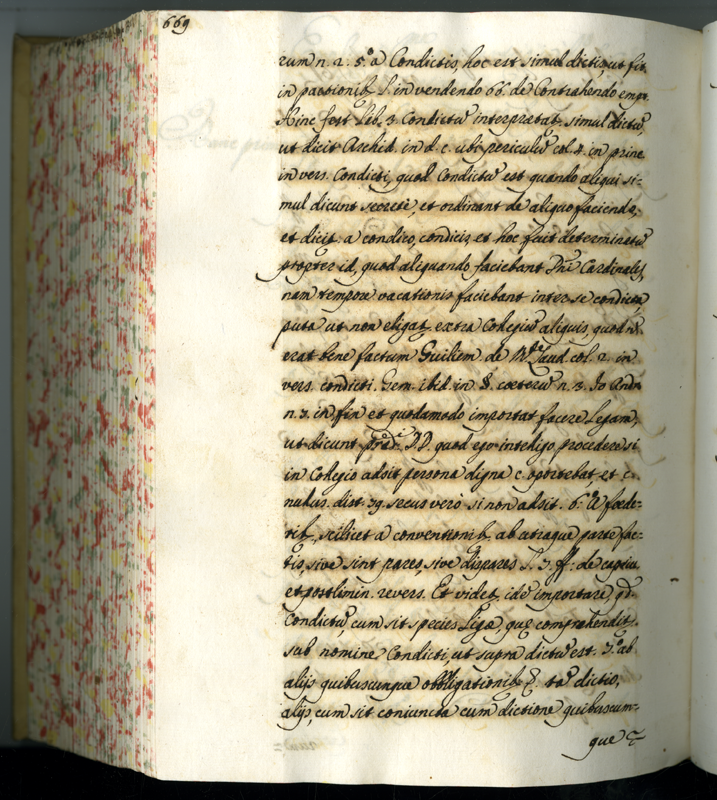 669
rum n. 2. 5.º a Condictis, hoc est simul dictis, ut fit
in pactionib. l. in vendendo 66. de Contrahendo empt.
Hinc fest. Lib. 3. Condictũ interpretat. simul dictũ
ut dicit Archid. in d. c. ubi periculũ col. 4. in princ.
in vers. Condicti, quod Condictũ est quando aliqui si=
mul dicunt secretè, et ordinant de aliquo faciendo,
et dicit. a condico, condicis, et hoc fuit determinatũ
propter id, quod aliquando faciebant Dni Cardinales,
nam tempore vacationis faciebant inter se condicta,
puta ut non eligat. extra Collegiũ aliquis, quod n.
erat bene factum Guiliem. de Laud. col. 2. in
vers. condicti. Gem. ibid. in §. cœterũ n. 3. Jo Andr.
n. 3. in fin et quodamodo importat facere Legam,
ut dicunt præd.i DD. quod ego intelligo procedere si
in Collegio adsit persona digna c. oportebat et c.
nullus. dist. 79. secus verò si non adsit. 6.º A fœde=
rib., scilicet a conventionib. ab utraque parte fac=
tis, sive sint pares, sive dispares l. 7. ff: de captiu.
et postlimin. revers. Et videt. idẽ importare qd.
Condictũ, cum sit species Ligæ, quæ comprehendit.
sub nomine Condicti, ut supra dictũ est. 7.º ab
alijs quibuscunque obbligationib. &. ta dictio,
alijs, cum sit coniuncta cum dictione quibuscum=
que &